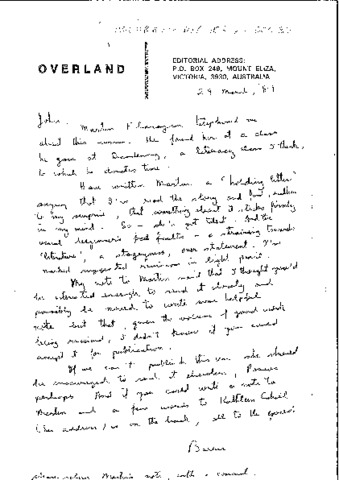 OVERLAND
EDITORIAL ADDRESS:
P.O. BOX 249, MOUNT ELIZA,
VICTORIA, 3930, AUSTRALIA
29 March, '81
John.
Martin Flanagan telephoned me
about this woman. He found her at a class
he gave at Dandenong, a literacy class I think,
to which he donates time.
Have written Martin, a "holding letter"
saying that I've read the story and find, rather
to my surprise, that something about it sticks firmly
in my mind. So she's got talent. And the
usual beginner's faults - a straining towards
'literature', a staginess, over statement. I've
marked suggested revisions in light pencil.
My note to Martin said that I thought you'd
be interested enough to read it closely and
possibly be moved to write some helpful
note but that, given the volume of good work
being received, I didn't know if you could
accept it for publication.
If we can't publish this one she should
be encouraged to send it elsewhere,
perhaps. And if you could write a note to
Martin and a few words to Kathleen
(her address) is on the back, all to the good.
Barrie
please return Martin's note, with